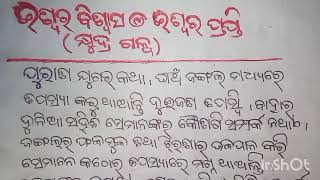 ଈଶ୍ୱର ବିଶ୍ୱାସ ଓ ଈଶ୍ୱର ପ୍ରାପ୍ତି
(କ୍ଷୁଦ୍ର ଗଳ୍ପ)
ପୁରାଣ ଯୁଗର କଥା, ଜଙ୍ଗଲ ମଧ୍ୟରେ
ତପସ୍ୟା କରୁଥାଆନ୍ତି ଦୁଇଜଣ ତପସ୍ୱୀ, ବାହାର
ଦୁନିଆ ସହିତ ସେମାନଙ୍କର କୌଣସି ସମ୍ପର୍କ ନଥାଏ,
ଜଙ୍ଗଲର ଫଳମୂଳ ତଥା ଝରଣାର ଜଳପାନ କରି
ସେମାନେ କଠୋର ତପସ୍ୟାରେ ମଗ୍ନ ଥାଆନ୍ତି